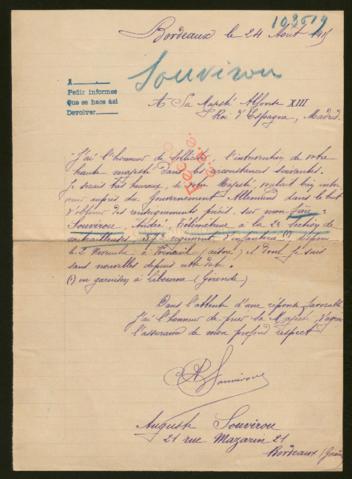 103519
Bordeaux le 24 Août 1915
Souvirou
A
Pedir informes
Que se hace así
Devolver
A Sa Majesté Alfonse XIII
Roi d'Espagne, Madrid.
J'ai l'honneur de solliciter l'intervention de votre
haute majesté dans les circonstances suivantes.
Je serais très heureux, si votre Majesté, voulait bien inter-
venir auprès du Gouvernement Allemand dans le but
d'obtenir des renseignements précis sur mon frère
Souvirou, André, Télémétreur à la 2e section de
mitrailleuses, 57e régiment d'infanterie (1) disparu
le 2 Novembre à (Aisne) et dont je suis
sans nouvelles depuis cette date.
(1) en garnison à Libourne (Gironde)
Dans l'attente d'une réponse favorable
J'ai l'honneur de prier Sa Majesté d'agréer
l'assurance de mon profond respect
A Souvirou
Auguste Souvirou
21 rue Mazarin 21
Bordeaux